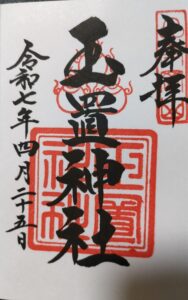 奉拝
玉置神社
令和七年四月二十五日